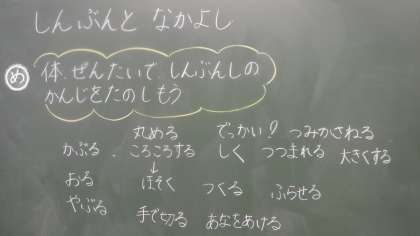 しんぶんと なかよし
め 体、ぜんたいで、しんぶんしの
かんじをたのしもう
丸める でっかい! つみかさねる
かぶる . ころころする しく つつまれる 大きくする
↓
おる ほそく つくる ふらせる
やぶる 手で切る あなをあける